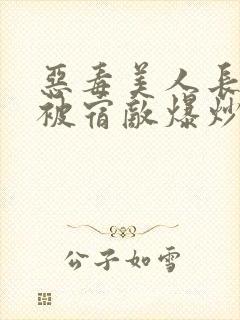 惡毒美人長
被宿敵爆炒
公子如雪